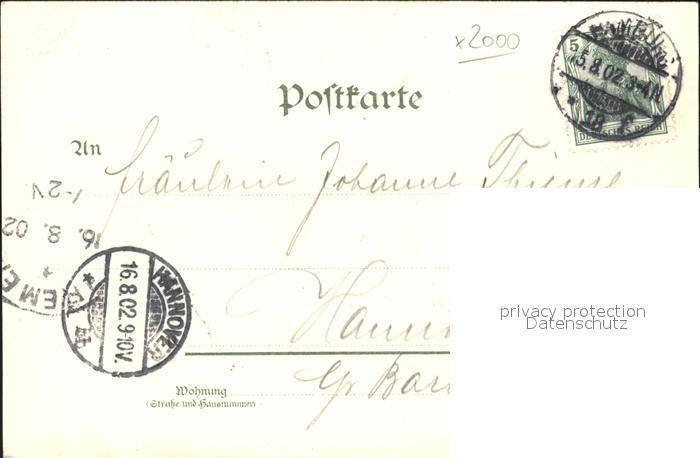 x2000
HAMBURG
5
15.8.02.3-4N.
DEUTSCHES REICH
Postkarte
An Fräulein Johanne Thieme
1-2V
16. 8. 02
HANNOVER
16.8.02.9-10V.
privacy protection
Datenschutz
Gr
Wohnung
(Straße und Hausnummer)